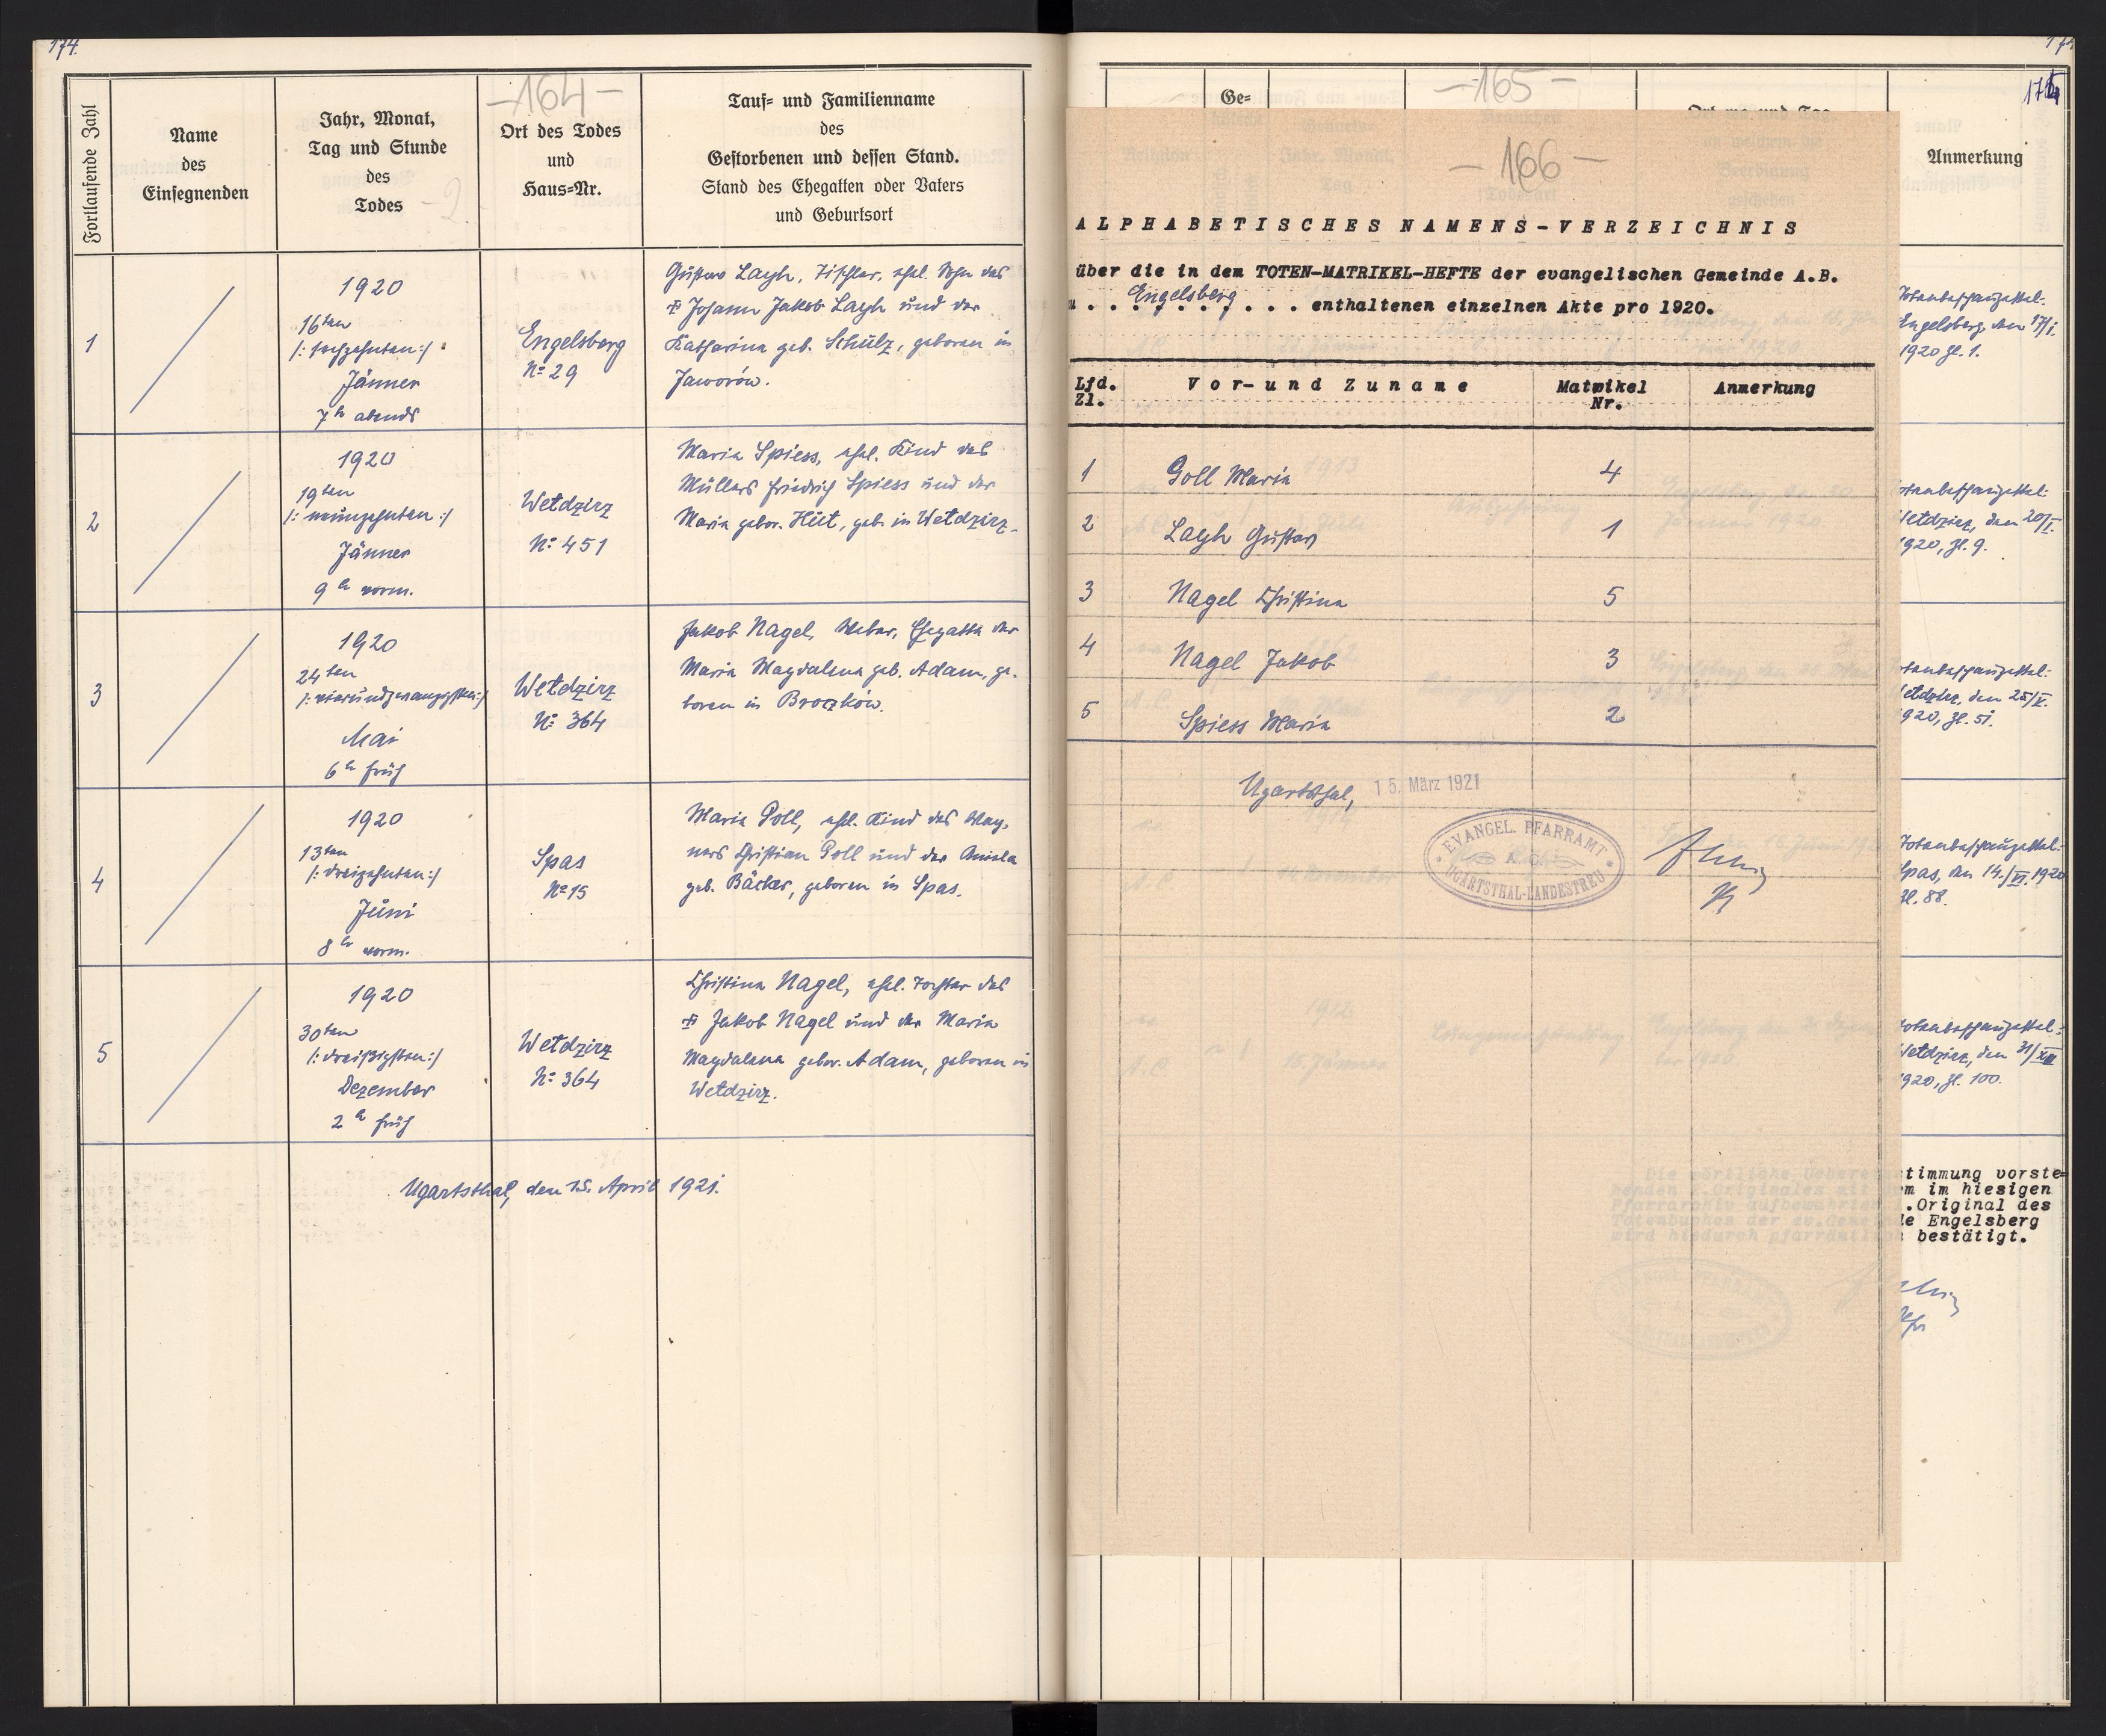 174.
-164-
Fortlaufende Zahl
Name
des
Einsegnenden
Jahr, Monat,
Tag und Stunde
des
Todes
-2-
Ort des Todes
und
Haus=Nr.
Tauf= und Familienname
des
Gestorbenen und dessen Stand.
Stand des Ehegatten oder Vaters
und Geburtsort
1
1920
16ten
/: sechzehnten :/
Jänner
7h abends
Engelsberg
No 29
Gustav Layh, Tischler, ehel. Sohn des
Johann Jakob Layh und der
Katharina geb. Schülz, geboren in
Jaworów.
2
1920
19ten
/: neunzehnten :/
Jänner
9h vorm.
Wetdzirz
No 451
Maria Spiess, ehel. Kind des
Müllers Friedrich Spiess und der
Maria gebor. Hüt, geb. in Wetdzirz.
3
1920
24ten
/: vierundzwanzigsten :/
Mai
6h früh
Wetdzirz
No 364
Jakob Nagel, Weber, Ehegatte der
Maria Magdalena geb. Adam, ge-
boren in Broczków.
4
1920
13ten
/: dreizehnten :/
Juni
8h vorm.
Spas
No 15
Maria Goll, ehel. Kind des Wag-
ners Christian Goll und der Amiela
geb. Bäcker, geboren in Spas.
5
1920
30ten
/: dreißigsten :/
Dezember
2h früh
Wetdzirz
No 364
Christina Nagel, ehel. Tochter des
Jakob Nagel und der Maria
Magdalena gebor. Adam, geboren in
Wetdzirz.
Ugartsthal, den 15. April 1921.
-165-
Ge=
-166-
ALPHABETISCHES NAMENS-VERZEICHNIS
über die in dem TOTEN-MATRIKEL-HEFTE der evangelischen Gemeinde A.B.
Engelsberg . . . enthaltenen einzelnen Akte pro 1920.
Lfd. Zl.
Vor- und Zuname
Matrikel Nr.
Anmerkung
1 Goll Maria 4
2 Layh Gustav 1
3 Nagel Christina 5
4 Nagel Jakob 3
5 Spiess Maria 2
Ugartsthal, 15. März 1921
EVANGEL. PFARRAMT
A. C.
UGARTSTHAL-LANDESTREU
Anmerkung
Totenbeschauzettel:
Engelsberg, den 17/I.
1920 Zl. 1.
otenbeschauzettel:
Wetdzirz, den 20/I.
1920, Zl. 9.
otenbeschauzettel:
etdzirz, den 25/V.
920, Zl. 51.
Totenbeschauzettel:
Spas, den 14./VI. 1920
Zl. 88.
otenbeschauzettel:
Wetdzirz, den 31/XII
1920, Zl. 100.
stimmung vorste=
m im hiesigen
.Original des
de Engelsberg
bestätigt.